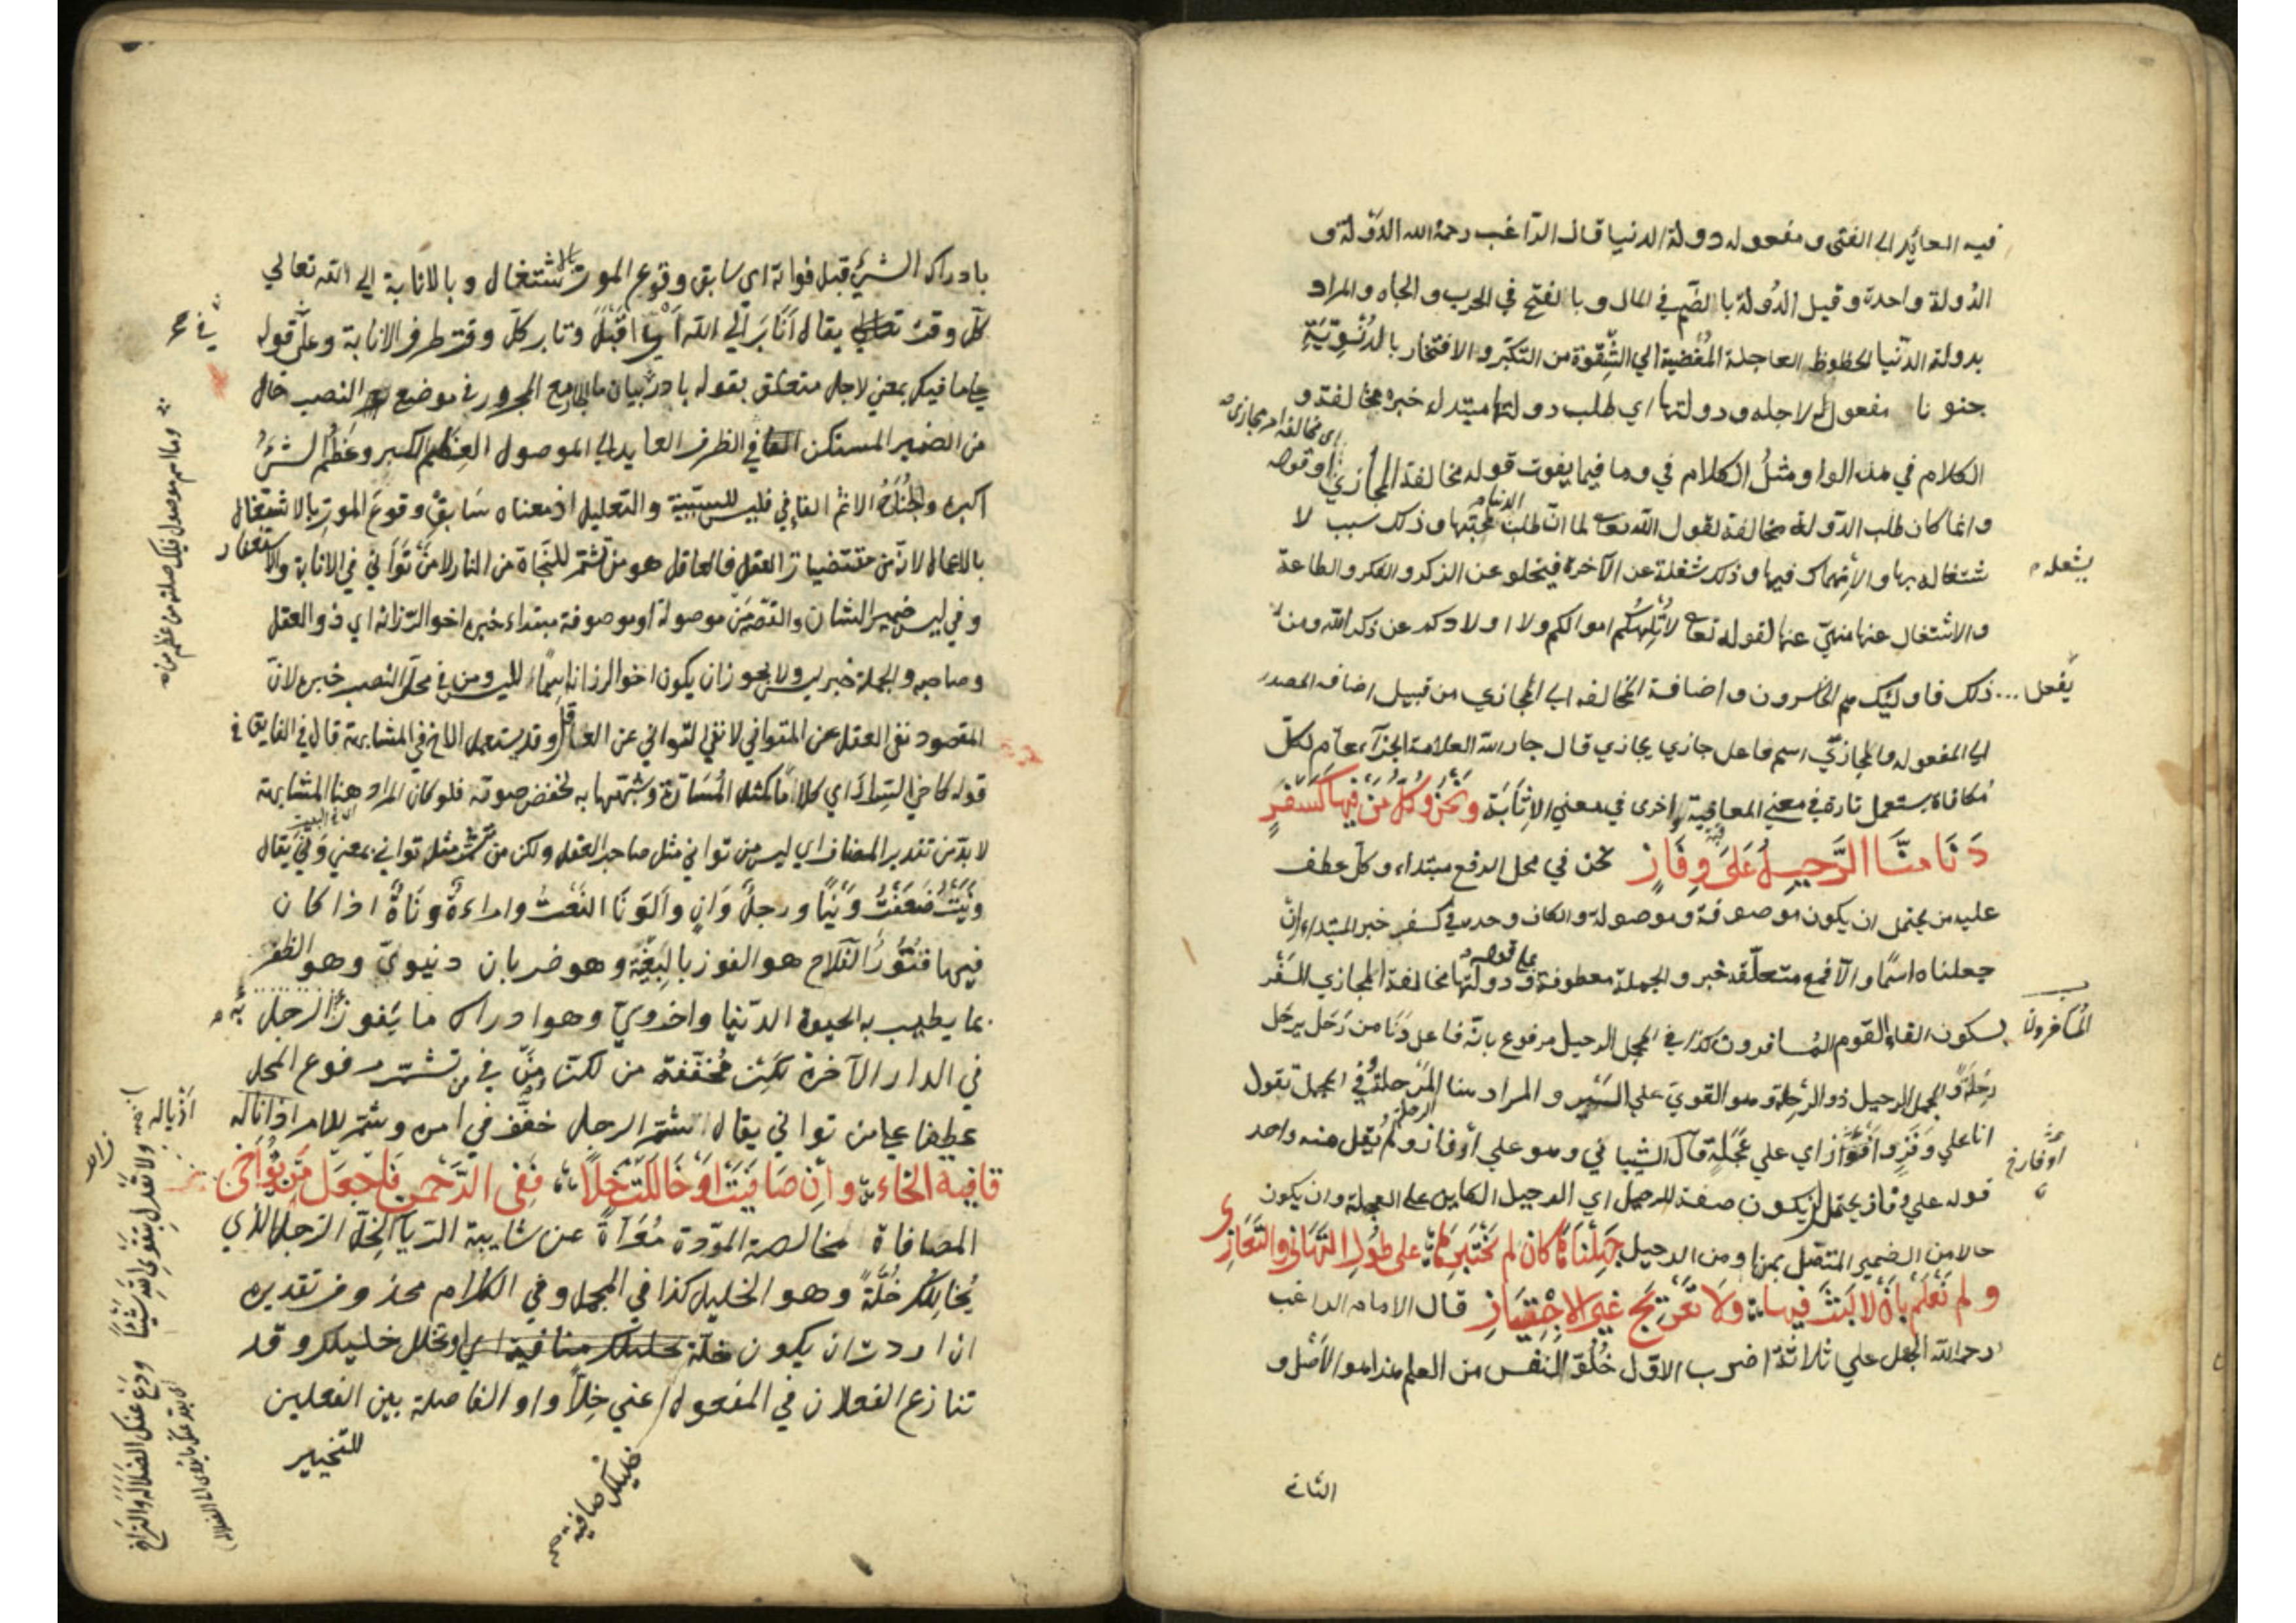 فيه العائد الى الفتى ومفعوله دولة الدنيا قال الراغب رحمه الله الدولة و
الدُولة واحدة وقيل الدُولة بالضم في المال وبالفتح في الحرب والجاه والمراد
بدولة الدنيا لحظوظ العاجلة المُفضية الي الشِقوة من التكبّر والافتخار بالدُنْيَويّة
جنونا مفعول له لاجله ودولتها اي طلب دولتها مبتداء خبره مخالفة و
الكلام في هذه الواو مثلُ الكلام في وما فيما يفوت قوله مخالفة المجازي
وانما كان طلب الدولة مخالفة لقول الله تعالى لما انّ طلب الدنيا محبّتها وذلك سبب لا
شتغاله بها والانهماك فيها وذلك شغلة عن الآخرة فيخلو عن الذكر والفكر والطاعة
يشغله
والاشتغال عنها منهيّ عنها لقوله تعالى لا تُلْهِكُم اموالكم ولا اولادكم عن ذكر الله ومن
يفعل ... ذلك فاولئك هم الخاسرون واضافة المخالفه الى المجازي من قبيل اضافه المصدر
الى المفعول والمجازيّ اسم فاعل جازي يجازي قال جار الله العلامة الجزآء عام لكلّ
مُكافاة يستعمل تارة في معني المعاقبة واخرى في معني الاِثابَة وَنَحْنُ وَكُلُّ مَنْ فِيهَا كَسَفْرٍ
دَنَا مِنَّا الرَّحِيلُ عَلَى وِفَازٍ نحن في محل الرفع مبتداء وكل عطف
عليه من يحتمل ان يكون موصوفة وموصولة والكاف وحده في كسفر خبر المبتداء ان
جعلناه اسمًا والّا فمع متعلّقه خبر والجملة معطوفة على قوله ودولتها مخالفة المجازي السَفْر
بسكون الفاء القوم المسافرون كذا في المجمل الرحيل مرفوع بانّه فاعل دَنَا من رَحَل يرحَل
المُسافرون
رِحْلَةً وفي المجمل الرحيل ذو الرُحلة وهو القويّ علي السَيْر والمراد هنا المَرْحلة وفي المجمل تقول
انا علي وَفَزٍ واَوْفَازٍ اي علي عَجَلةٍ قال الشيباني وهو علي أوفاز ولم يُقل منه واحد
أوفاز
قوله علي وفاز يحتمل ان يكون صفة للرحيل اي الرحيل الكاين على العجلة وان يكون
حالا من الضمير المتصل بمنّا ومن الرحيل جَهِلْنَاهَا كَأن لم نَخْتَبِرْهَا على طُولِ التَّهَانِي والتَّعَازِي
ولم نَعْلَمْ بِأَنْ لا لَبْثَ فيها ولا تَعْرِيجَ غَيرَ الاِجْتِيَازِ قال الامام الراغب
رحمه الله الجهل علي ثلاثة اضرب الاول خُلُوّ النفس من العلم هذا هو الأصْل و
الثاني
بادراك الشيء قبل فواته اي سابق وقوع الموت بالاشتغال وبالانابة الي الله تعالي
كلّ وقت يقال أنَابَ الَي الله اي اقبَلَ وتاب وكلّ وقت ظرف الانابة وعلي قوله
علي ما فيك بمعني لاجل متعلق بقوله بادر بيان ما الجار مع المجرور في موضع النصب حال
من الضمير المستكن في الظرف العايد الى الموصول العِظَم الكبر وعُظْمُ الشيءِ
اكبره والجُنَاحُ الاثم الفاء في فليس للسببيّة والتعليل اذ معناه سَابِقْ وقوعَ الموتِ بالاشتغال
بالاعمال لانّه من مقتضيات العقل فالعاقل هو من تشمّر للنّجاة من النار لا من تَوَانَي في الانابة والاستغفار
وفي ليس ضمير الشان والقصة مَن موصولة او موصوفة مبتداء خبره اخو الرزانة اي ذو العقل
وصاحبه والجملة خبر ليس ولا يجوز ان يكون اخو الرزانة اِسمًا لليس ومن في محل النصب خبره لانّ
المقصود نفي العقل عن المتواني لا نفي التواني عن العاقل وقد يستعمل الاخ في المشابهة قال في الفايق في
قوله كاخي السِرار اي كلامًا كمثل المُسَارّة وشبهها به لخفض صوته فلو كان المراد هنا المشابهة
لا بدّ من تقدير المضاف اي ليس من توانى مثل صاحب العقل ولكن من تشمّر مثل توانى بمعني وَنَى يقال
وَنَيْتُ ضَعَفْتُ وَنْيًا ورجلٌ وَانٍ والوَنَا التعب وامراءةٌ وَنَاةٌ اذا كان
فيها فُتُورٌ الفلاح هو الفوز بالبُغْية وهو ضربان دنيويّ وهو الظفر
بما يطيب به الحيوة الدّنيا واخرويّ وهو ادراك ما يَفوزُ الرجل به
في الدار الآخرة لكِنْ مُخَفّفة من لكنّ ومَن في من تشمّر مرفوع المحل
عطفا علي من تواني يقال تشمّر الرجل خفّف في امره وشمّر للامر اذا ناله
قافية الخاء وَإِنْ صَافَيْتَ أَوْ خَالَلْتَ خِلًّا فَفِى الرَّحْمنِ فَاجْعَلْ مَن تُوَاخِى
المصافاة مخالصة المودّة مُعَرّاةً عن شايبة الريآ الخِلّ الرجل الذي
يُخالِلُكَ خُلَّةً وهو الخليل كذا في المجمل وفي الكلام محذوف تقديره
ان اردت ان يكون خليلك او تخالل خليلك وقد
تنازع الفعلان في المفعول اعني خِلًّا واو الفاصلة بين الفعلين
للتخيير
وما اسم موصول فيك صلته من عظم
أذياله
ولا تَعْدِل بِتَقْوَى اللهِ شَيْئًا وَدَعْ عَنْكَ الضَّلالَةَ والتَّرَاخِي